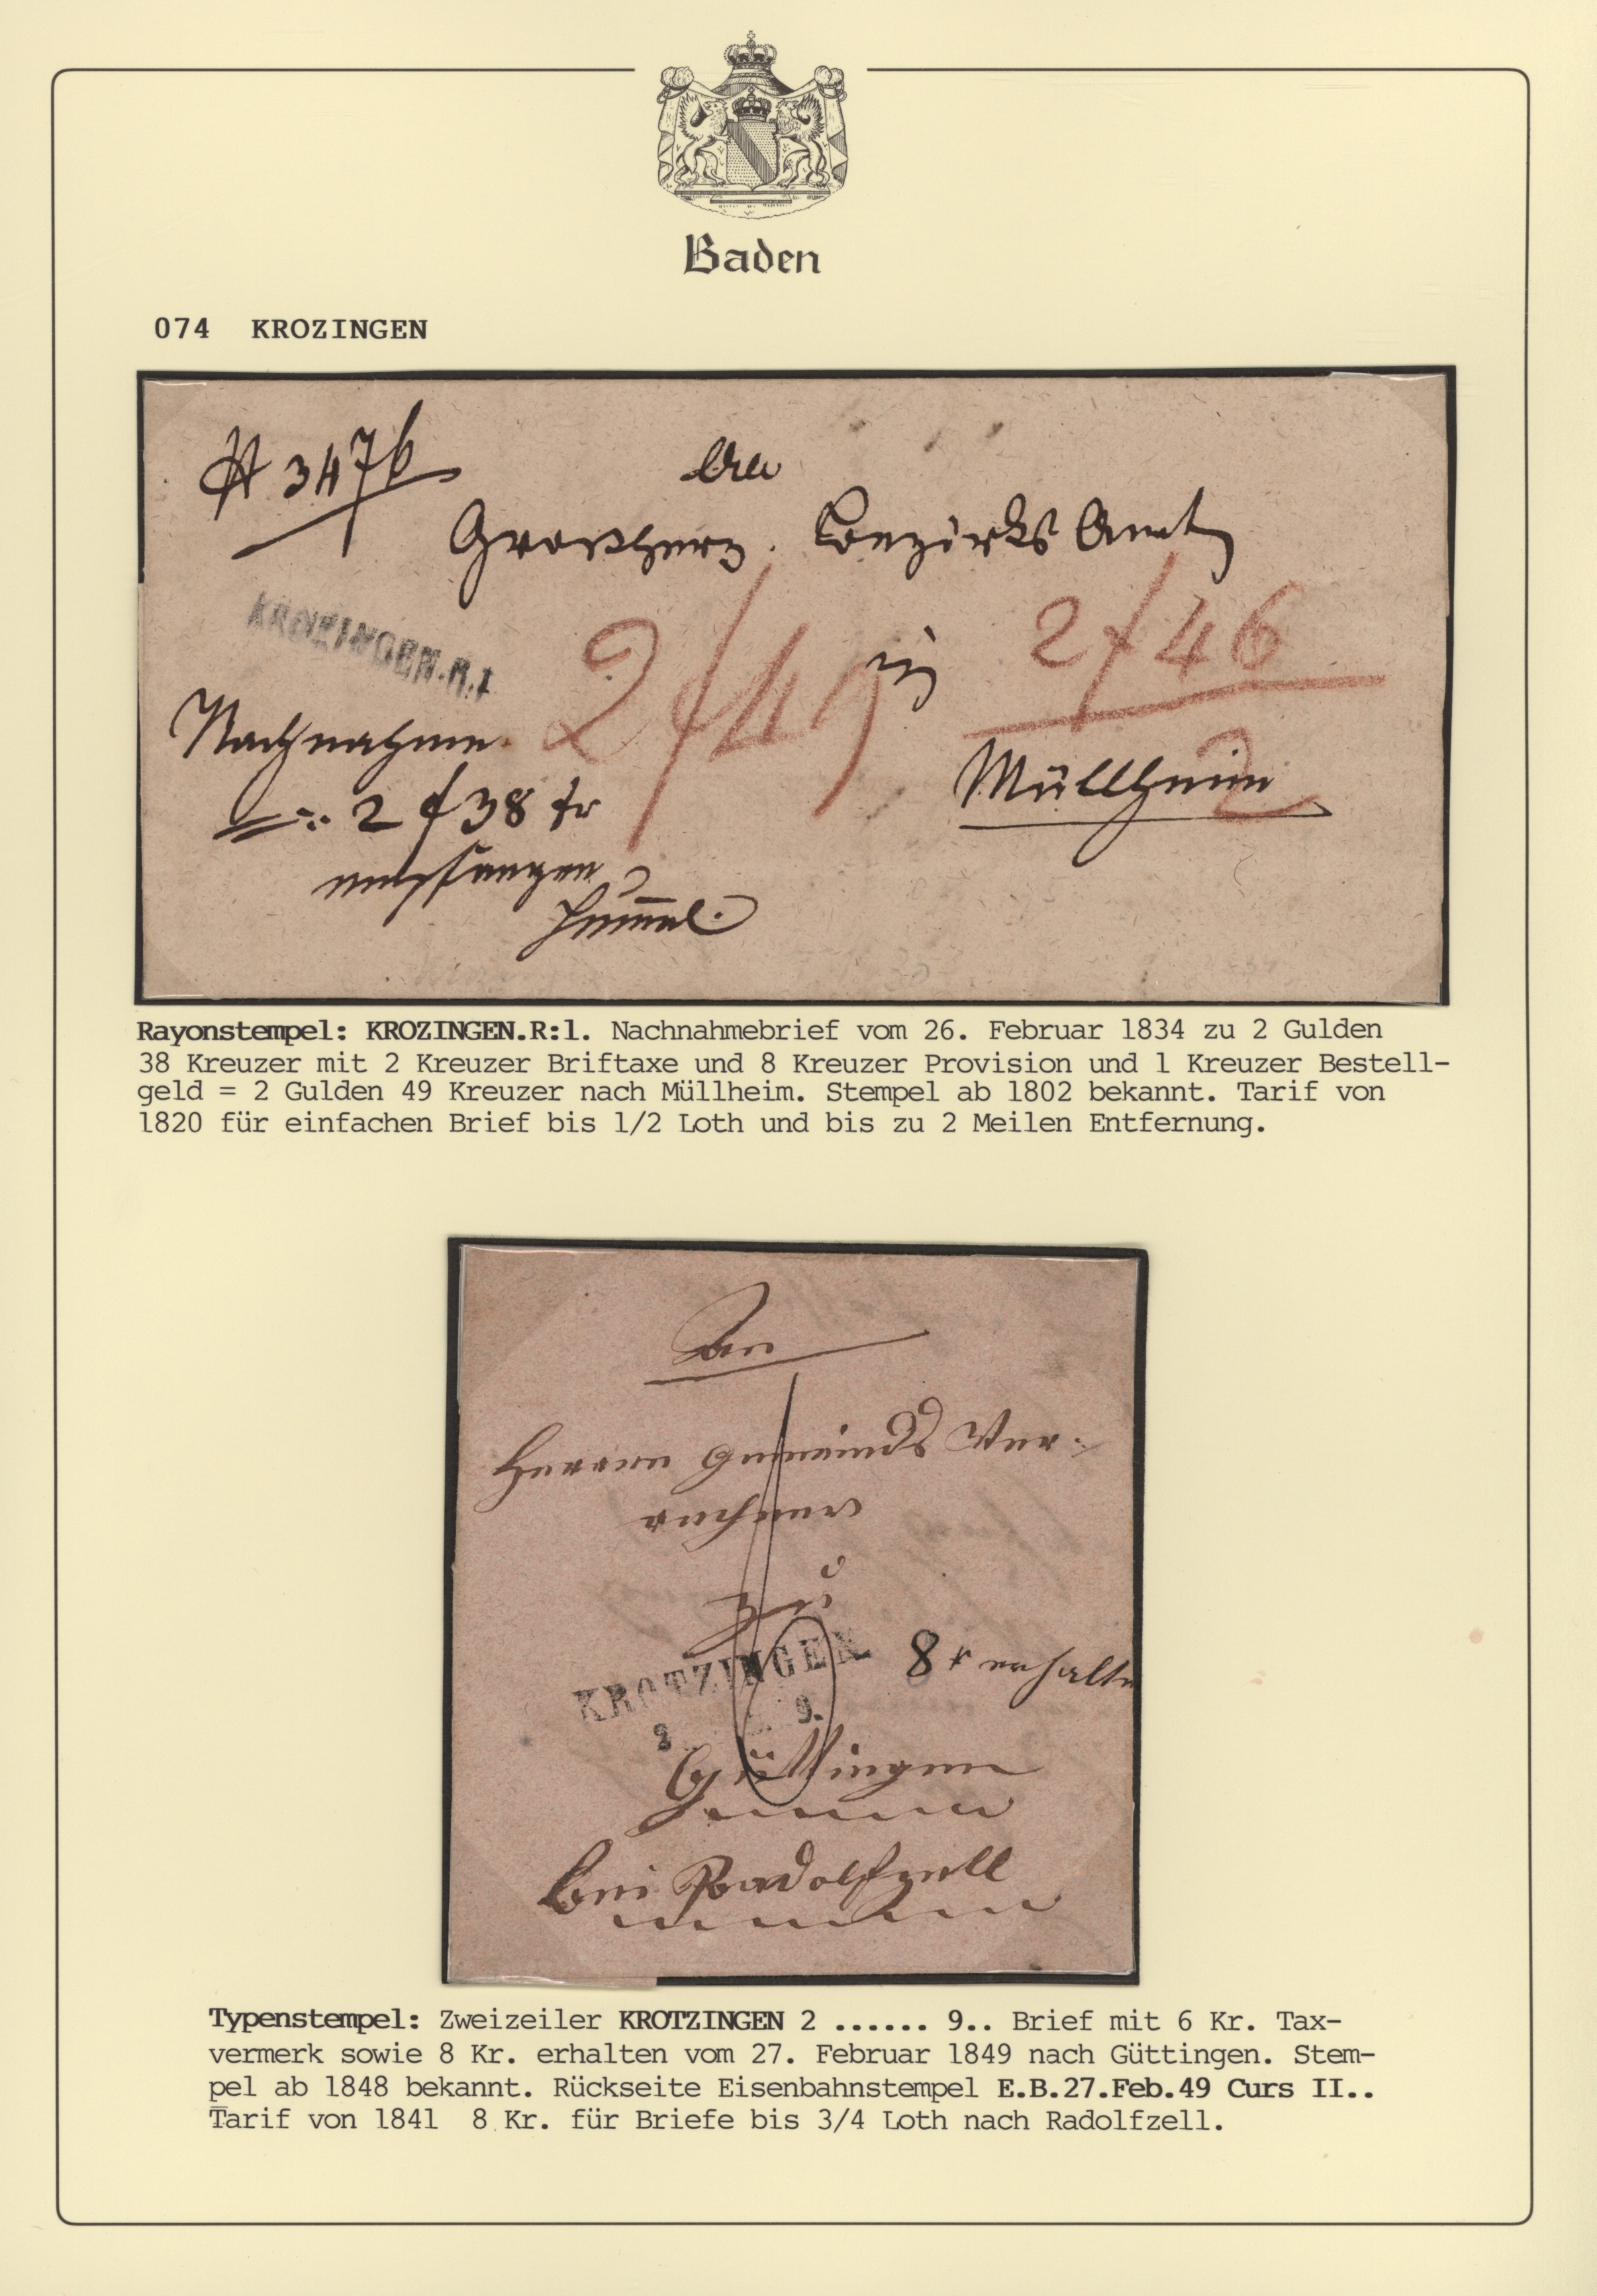 Baden
074 KROZINGEN
# 3476
An
Grosherz. Bezirks Amt
KROZINGEN.R.1
2 f 49
in
2 f 46
Nachnahme
2
Müllheim
2 f 38 kr
empfangen
Hummel.
Rayonstempel: KROZINGEN.R:1. Nachnahmebrief vom 26. Februar 1834 zu 2 Gulden
38 Kreuzer mit 2 Kreuzer Briftaxe und 8 Kreuzer Provision und 1 Kreuzer Bestell-
geld = 2 Gulden 49 Kreuzer nach Müllheim. Stempel ab 1802 bekannt. Tarif von
1820 für einfachen Brief bis 1/2 Loth und bis zu 2 Meilen Entfernung.
An
Herrn Gemeinds Ver-
rechner
zu
KROTZINGEN
8 kr erhalten
2 9.
Güttingen
bei Radolfzell
Typenstempel: Zweizeiler KROTZINGEN 2 ...... 9.. Brief mit 6 Kr. Tax-
vermerk sowie 8 Kr. erhalten vom 27. Februar 1849 nach Güttingen. Stem-
pel ab 1848 bekannt. Rückseite Eisenbahnstempel E.B.27.Feb.49 Curs II..
Tarif von 1841 8 Kr. für Briefe bis 3/4 Loth nach Radolfzell.